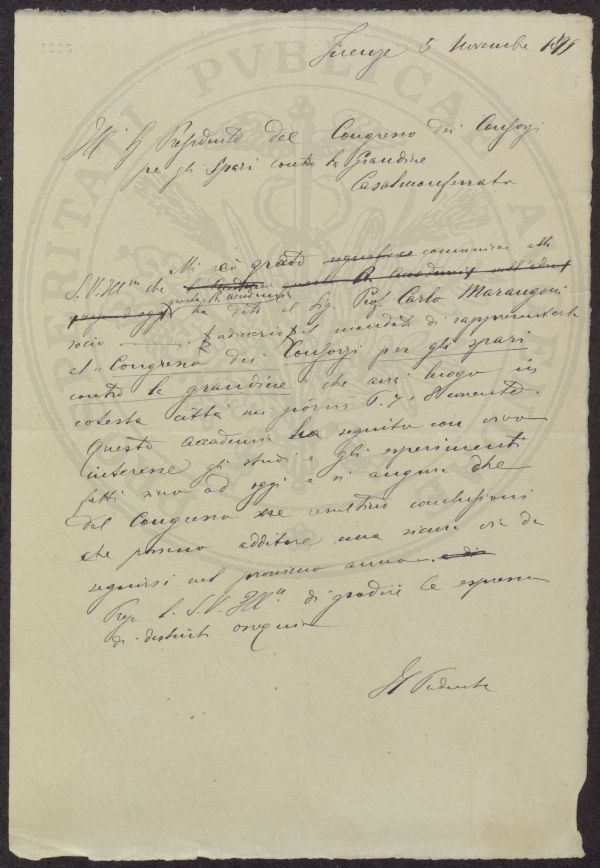 Firenze 5 Novembre 1899
Ill S Presidente del Congresso dei Consorzi
per gli Spari contro la Grandine
Casalmonferrato
Mi è grato comunicare alla
S.V. Illma che questa accademia
ha dato al Sig. Prof. Carlo Marangoni
socio ordinario il mandato di rappresentarla
al "Congresso dei Consorzi per gli spari
contro la grandine" che avrà luogo in
cotesta città nei giorni 6. 7 e 8 corrente.
Questa accademia ha seguito con vivo
interesse gli studi e gli esperimenti
fatti sino ad oggi e si augura che
dal Congresso ne resultino conclusioni
che possano additare una sicura via da
seguirsi nel prossimo anno.
Prego la S.V. Illma di gradire le espressioni
di distinti ossequi
Il Presidente
PVBLICAE